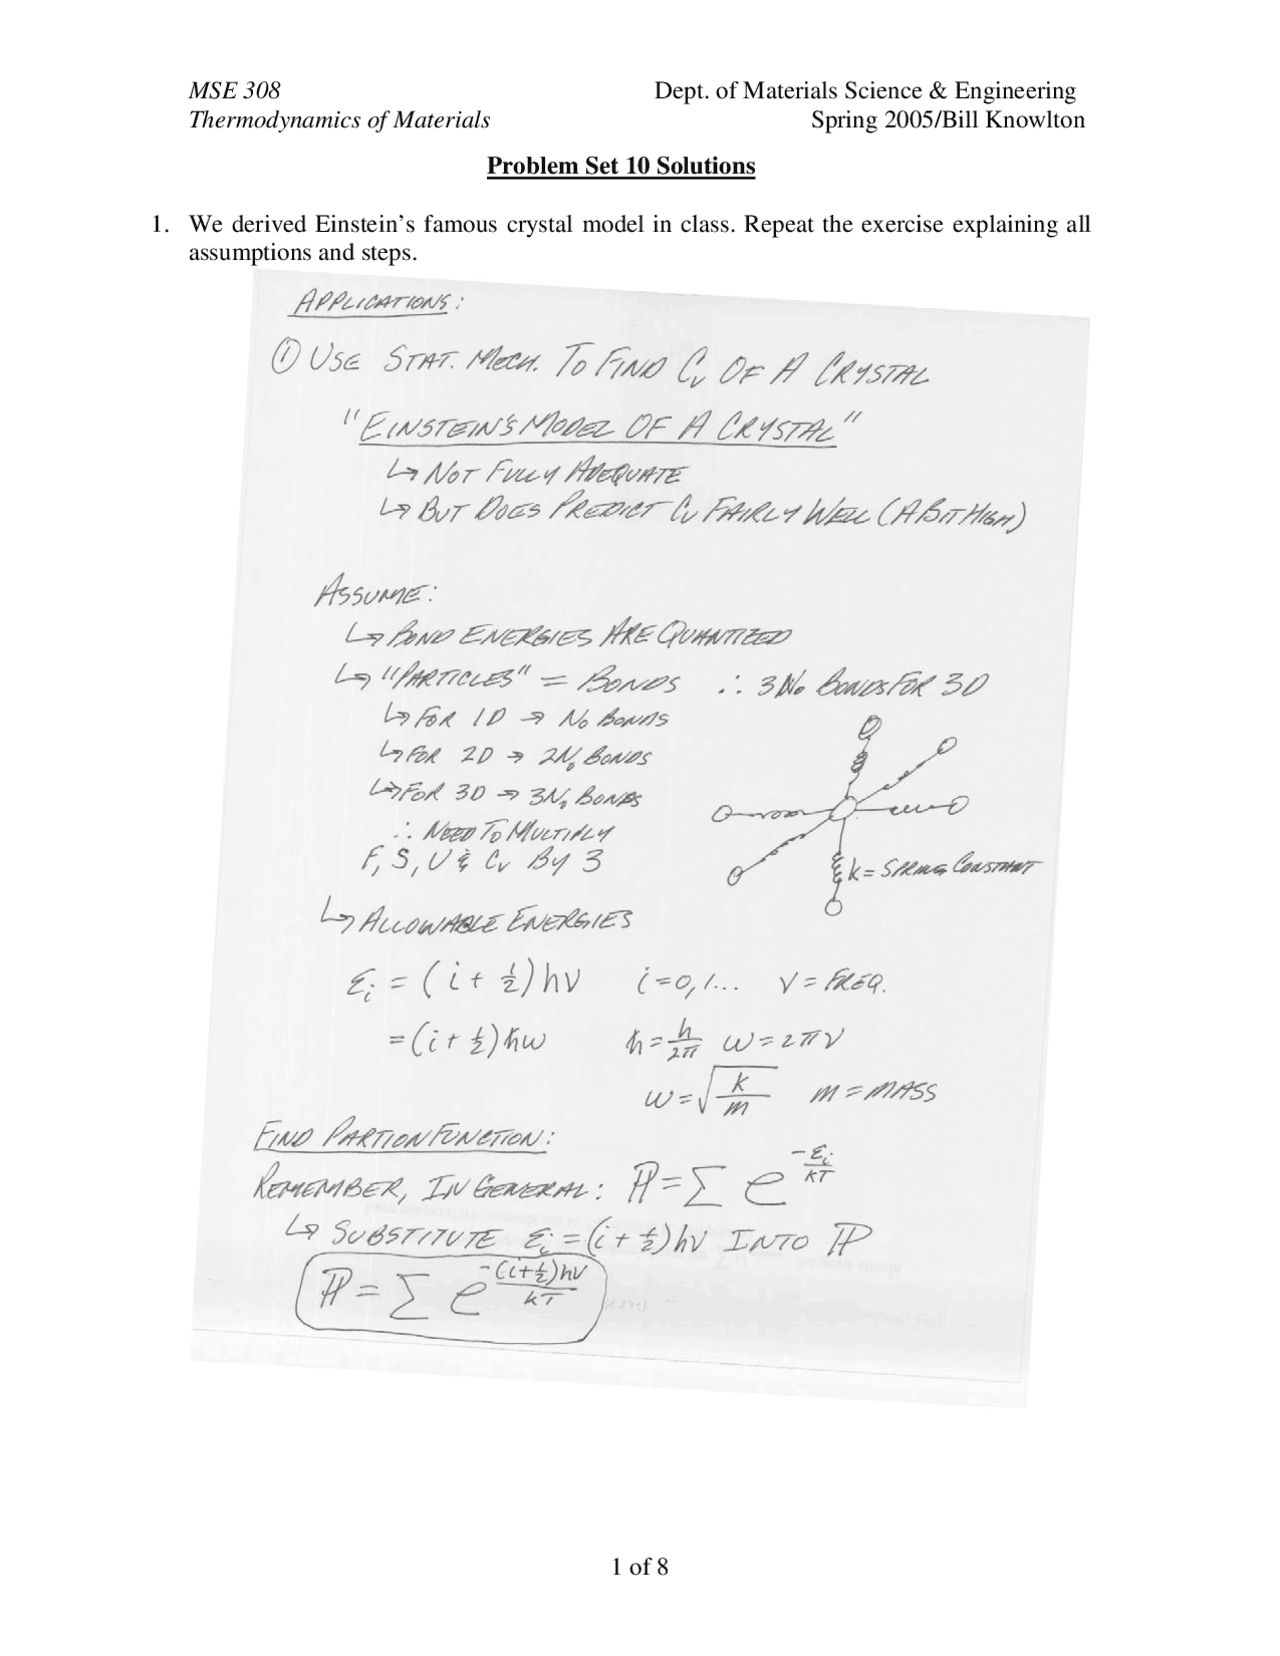 MSE 308 Dept. of Materials Science & Engineering
Thermodynamics of Materials Spring 2005/Bill Knowlton
Problem Set 10 Solutions
1. We derived Einstein's famous crystal model in class. Repeat the exercise explaining all
assumptions and steps.
APPLICATIONS:
① USE STAT. MECH. TO FIND Cv OF A CRYSTAL
"EINSTEIN'S MODEL OF A CRYSTAL"
↳ NOT FULLY ADEQUATE
↳ BUT DOES PREDICT Cv FAIRLY WELL (A BIT HIGH)
ASSUME:
↳ BOND ENERGIES ARE QUANTIZED
↳ "PARTICLES" = BONDS ∴ 3N₀ BONDS FOR 3D
↳ FOR 1D → N₀ BONDS
↳ FOR 2D → 2N₀ BONDS
↳ FOR 3D → 3N₀ BONDS
∴ NEED TO MULTIPLY
F, S, U & Cv BY 3
k = SPRING CONSTANT
↳ ALLOWABLE ENERGIES
εᵢ = (i + ½)hν i = 0, 1... ν = FREQ.
= (i + ½)ħω ħ = h/2π ω = 2πν
ω = √(k/m) m = MASS
FIND PARTION FUNCTION:
REMEMBER, IN GENERAL: ℙ = Σ e^(-εᵢ/kT)
↳ SUBSTITUTE εᵢ = (i + ½)hν INTO ℙ
ℙ = Σ e^(-(i+½)hν/kT)
1 of 8